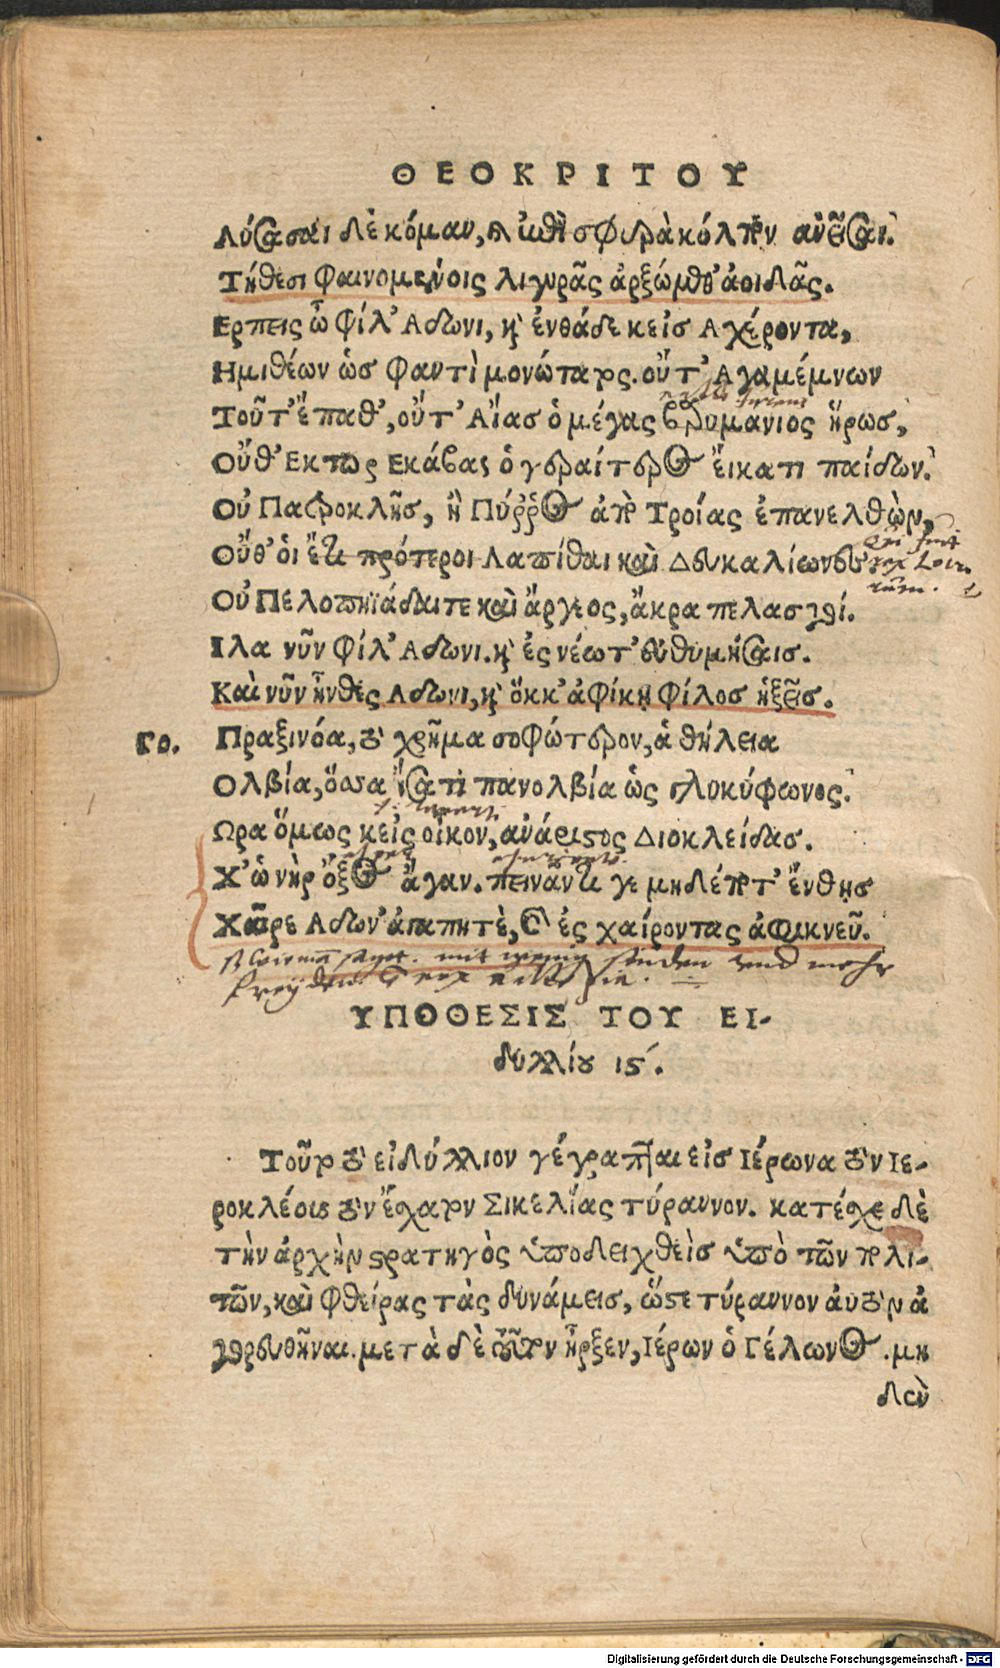 ΘΕΟΚΡΙΤΟΥ
Λύσασαι δὲ κόμαν, καὶ ἐπὶ σφυρὰ κόλπον ἀνεῖσαι.
Τήθεσι φαινομένοις λιγυρᾶς ἀρξώμεθ' ἀοιδᾶς.
Ερπεις ὦ φίλ' Αδωνι, κὴ ἐνθάδε κεἰσ Αχέροντα,
Ημιθέων ὡσ φαντὶ μονώτατος. οὔτ' Αγαμέμνων
Τοῦτ' ἔπαθ', οὔτ' Αἴασ ὁ μέγας βαρυμανιος ἥρωσ,
Οὔθ' Εκτωρ Εκάβας ὁ γεραίτερος ἔικατι παίδων.
Οὐ Πατροκλῆσ, ἢ Πύῤῥος ἀπὸ Τροίας ἐπανελθὼν,
Οὔθ' ὁι ἔτι πρότεροι Λαπίθαι καὶ Δευκαλίωνες
Οὐ Πελοπηϊάδαι τε καὶ ἄργεος, ἄκρα πελασγοί.
Ιλα νῦν φίλ' Αδωνι. κὴ ἐς νέωτ' εὐθυμήσαισ.
Καὶ νῦν ἦνθες Αδωνι, κὴ ὅκκ' ἀφίκῃ φίλοσ ἡξεῖσ.
Γο. Πραξινόα, τὸ χρῆμα σοφώτερον, ἁ θήλεια
Ολβία, ὅσσα ἴσατι πανολβία ὡς γλυκύφωνος.
Ωρα ὅμως κεἰς οἶκον, ἀνάριστος Διοκλείδασ.
Χ' ὡνὴρ ὄξος ἄγαν. πεινᾶντι γε μηδέποτ' ἔνθῃσ
Χαῖρε Αδων' ἀγαπητὲ, καὶ ἐς χαίροντας ἀφικνεῦ.
ΥΠΟΘΕΣΙΣ ΤΟΥ ΕΙ-
δυλλίου ις'.
Τοῦτο τὸ εἰδύλλιον γέγραπται εἰσ Ιέρωνα τὸν Ιε-
ροκλέους τὸν ἔσχατον Σικελίας τύραννον. κατέσχε δὲ
τὴν ἀρχὴν στρατηγὸς ὑποδειχθεὶσ ὑπὸ τῶν πολι-
τῶν, καὶ φθείρας τὰς δυνάμεισ, ὥστε τύραννον ἀυτὸν ἀ
γορευθῆναι. μετὰ δὲ τοῦτον ἦρξεν, Ιέρων ὁ Γέλωνος. μη
δὲν
Digitalisierung gefördert durch die Deutsche Forschungsgemeinschaft - DFG